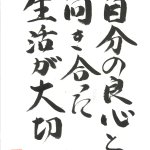 自分の良心と
向き合た
生活が大切